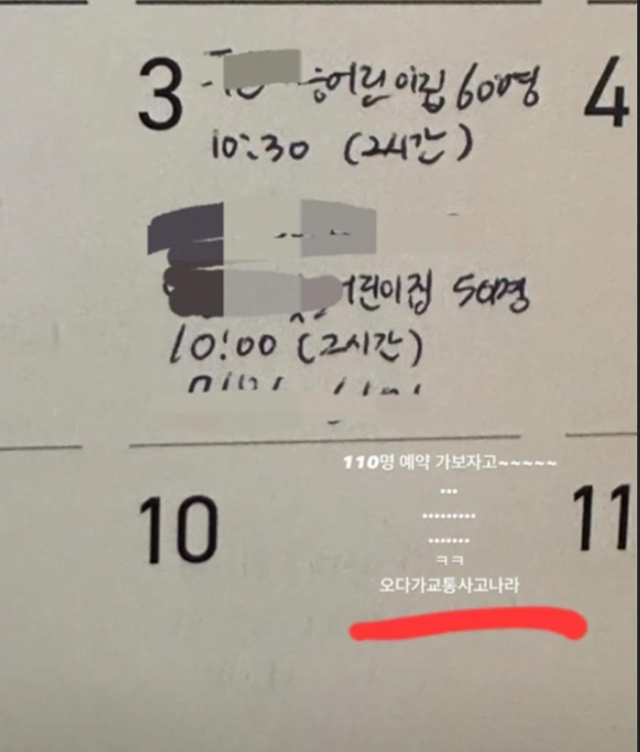 3
어린이집 60명
10:30 (2시간)
4
어린이집 50명
10:00 (2시간)
110명 예약 가보자고~~~~~
...
.........
.......
ㅋㅋ
오다가교통사고나라
10
11